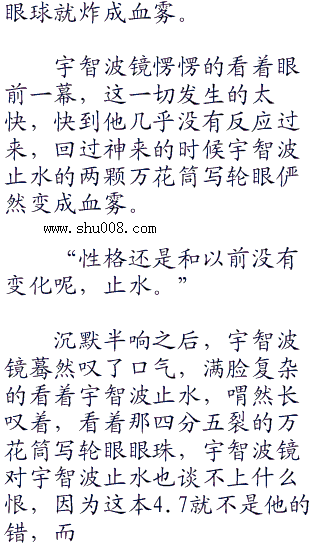 眼球就炸成血雾。
宇智波镜愣愣的看着眼
前一幕，这一切发生的太
快，快到他几乎没有反应过
来，回过神来的时候宇智波
止水的两颗万花筒写轮眼俨
然变成血雾。
www.shu008.com
“性格还是和以前没有
变化呢，止水。”
沉默半响之后，宇智波
镜蓦然叹了口气，满脸复杂
的看着宇智波止水，喟然长
叹着，看着那四分五裂的万
花筒写轮眼眼珠，宇智波镜
对宇智波止水也谈不上什么
恨，因为这本4.7就不是他的
错，而